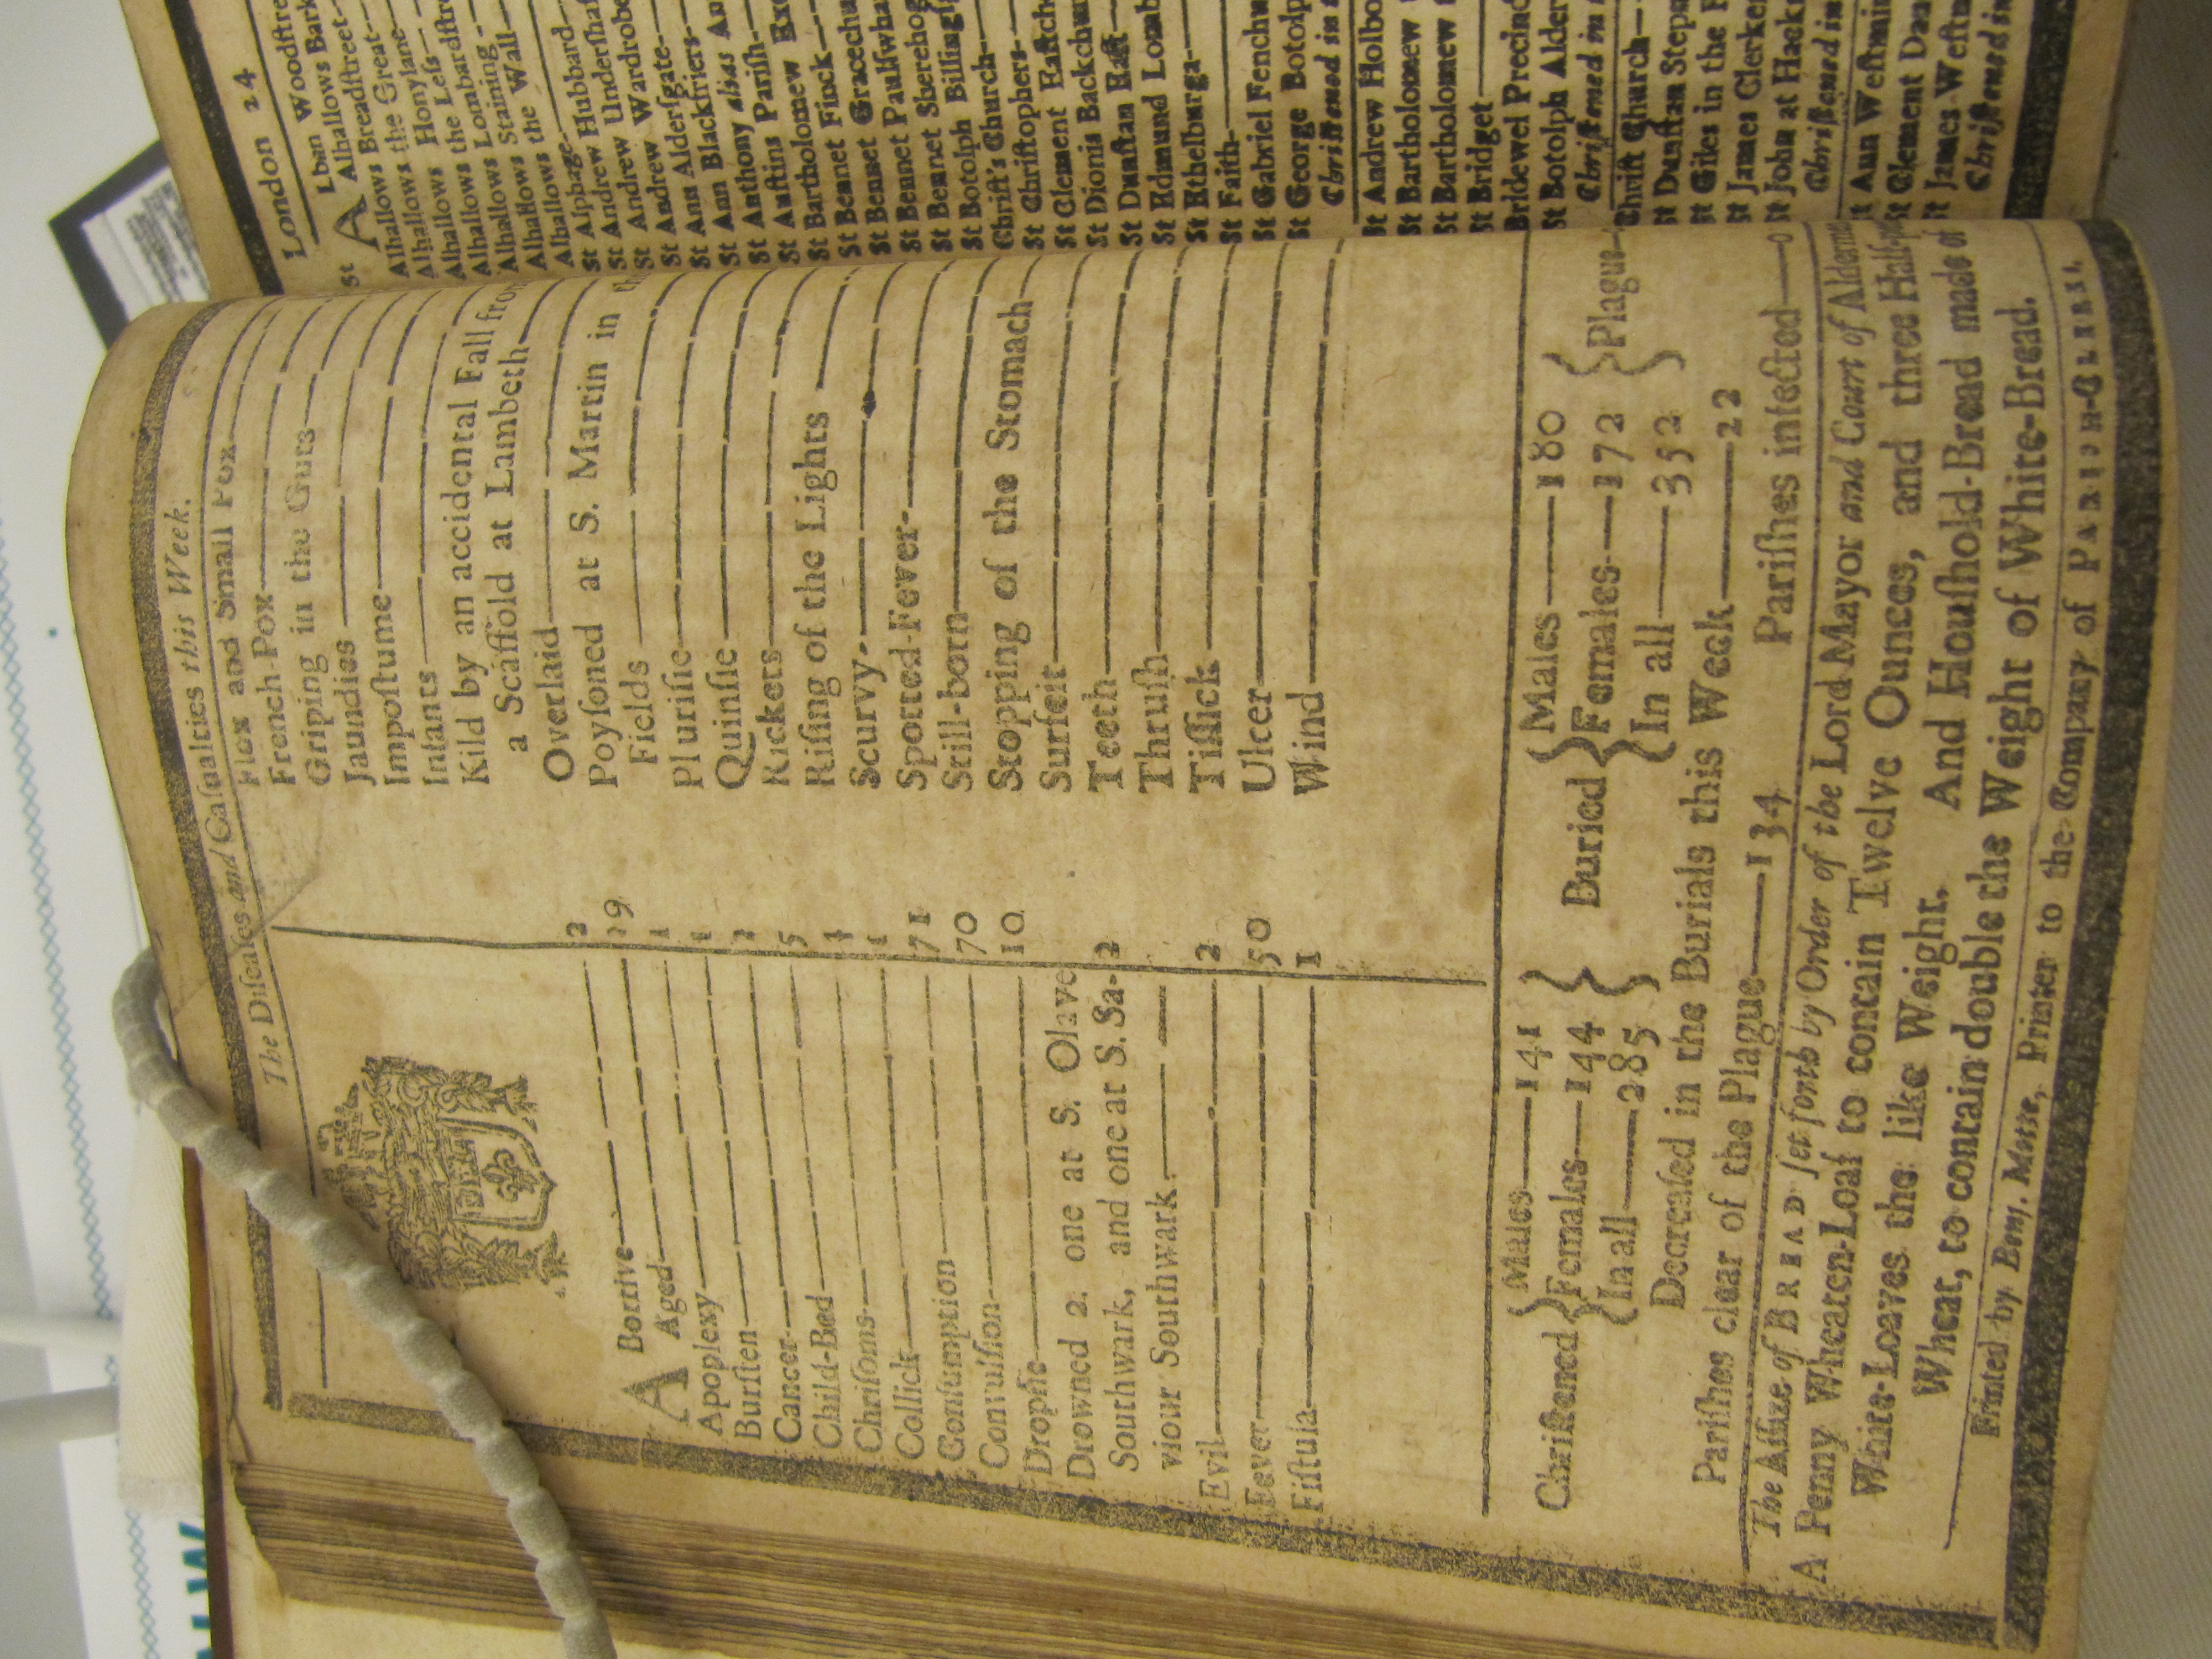 The Diſeaſes and Caſualties this Week.
A Bortive 2
Aged 19
Apoplexy 1
Burſten
Cancer
Child-Bed 5
Chriſoms
Collick 1
Conſumption 71
Convulſion 70
Dropſie 10
Drowned 2. one at S. Olave
Southwark, and one at S. Sa-
viour Southwark. 2
Evil 2
Fever 50
Fiſtula 1
Flox and Small Pox
French-Pox
Griping in the Guts
Jaundies
Impoſtume
Infants
Kild by an accidental Fall from
a Scaffold at Lambeth
Overlaid
Poyſoned at S. Martin in
Fields
Pluriſie
Quinſie
Rickets
Riſing of the Lights
Scurvy
Spotted-Fever
Still-born
Stopping of the Stomach
Surfeit
Teeth
Thruſh
Tiſſick
Ulcer
Wind
Chriſtened { Males 141 Females 144 In all 285 }
Buried { Males 180 Females 172 In all 352 } Plague
Decreaſed in the Burials this Week 22
Pariſhes clear of the Plague 134 Pariſhes infected 0
The Aſſize of BREAD ſet forth by Order of the Lord-Mayor and Court of
A Penny Wheaten-Loaf to contain Twelve Ounces, and three
White-Loaves the like Weight. And Houſhold-Bread made of
Wheat, to contain double the Weight of White-Bread.
Printed by Benj. Motte, Printer to the Company of PARISH-CLERKS.
London 24
St Alban Woodſtre
Alhallows Bark
Alhallows Breadſtreet
Alhallows the Great
Alhallows Honylane
Alhallows the Leſs
Alhallows Lombardſtre
Alhallows Staining
Alhallows the Wall
Alphage
St Andrew Hubbard
St Andrew Underſhaf
St Andrew Wardrobe
St Ann Alderſgate
St Ann Blackfriers
St Anthony alias
St Auſtins Pariſh
St Bartholomew
St Bennet Finck
St Bennet Gracechu
St Bennet Paulſwha
St Bennet Sherehog
St Botolph Billingſ
Chriſt's Church
St Chriſtophers
St Clement Eaſtche
St Dionis Backchur
St Dunſtan Eaſt
St Edmund Lomb
St Ethelburga
St Faith
St Gabriel Fenchu
St George Botolp
Chriſtened in
St Andrew Holbo
St Bartholomew
St Bartholomew
St Bridget
Bridewel Precin
St Botolph Alder
Chriſtened in
Chriſt Church
St Dunſtan Stepn
St Giles in the
St James Clerke
St John at Hack
Chriſtened in
St Ann Weſtmin
St Clement Dan
St James Weſtm
Chriſtened in